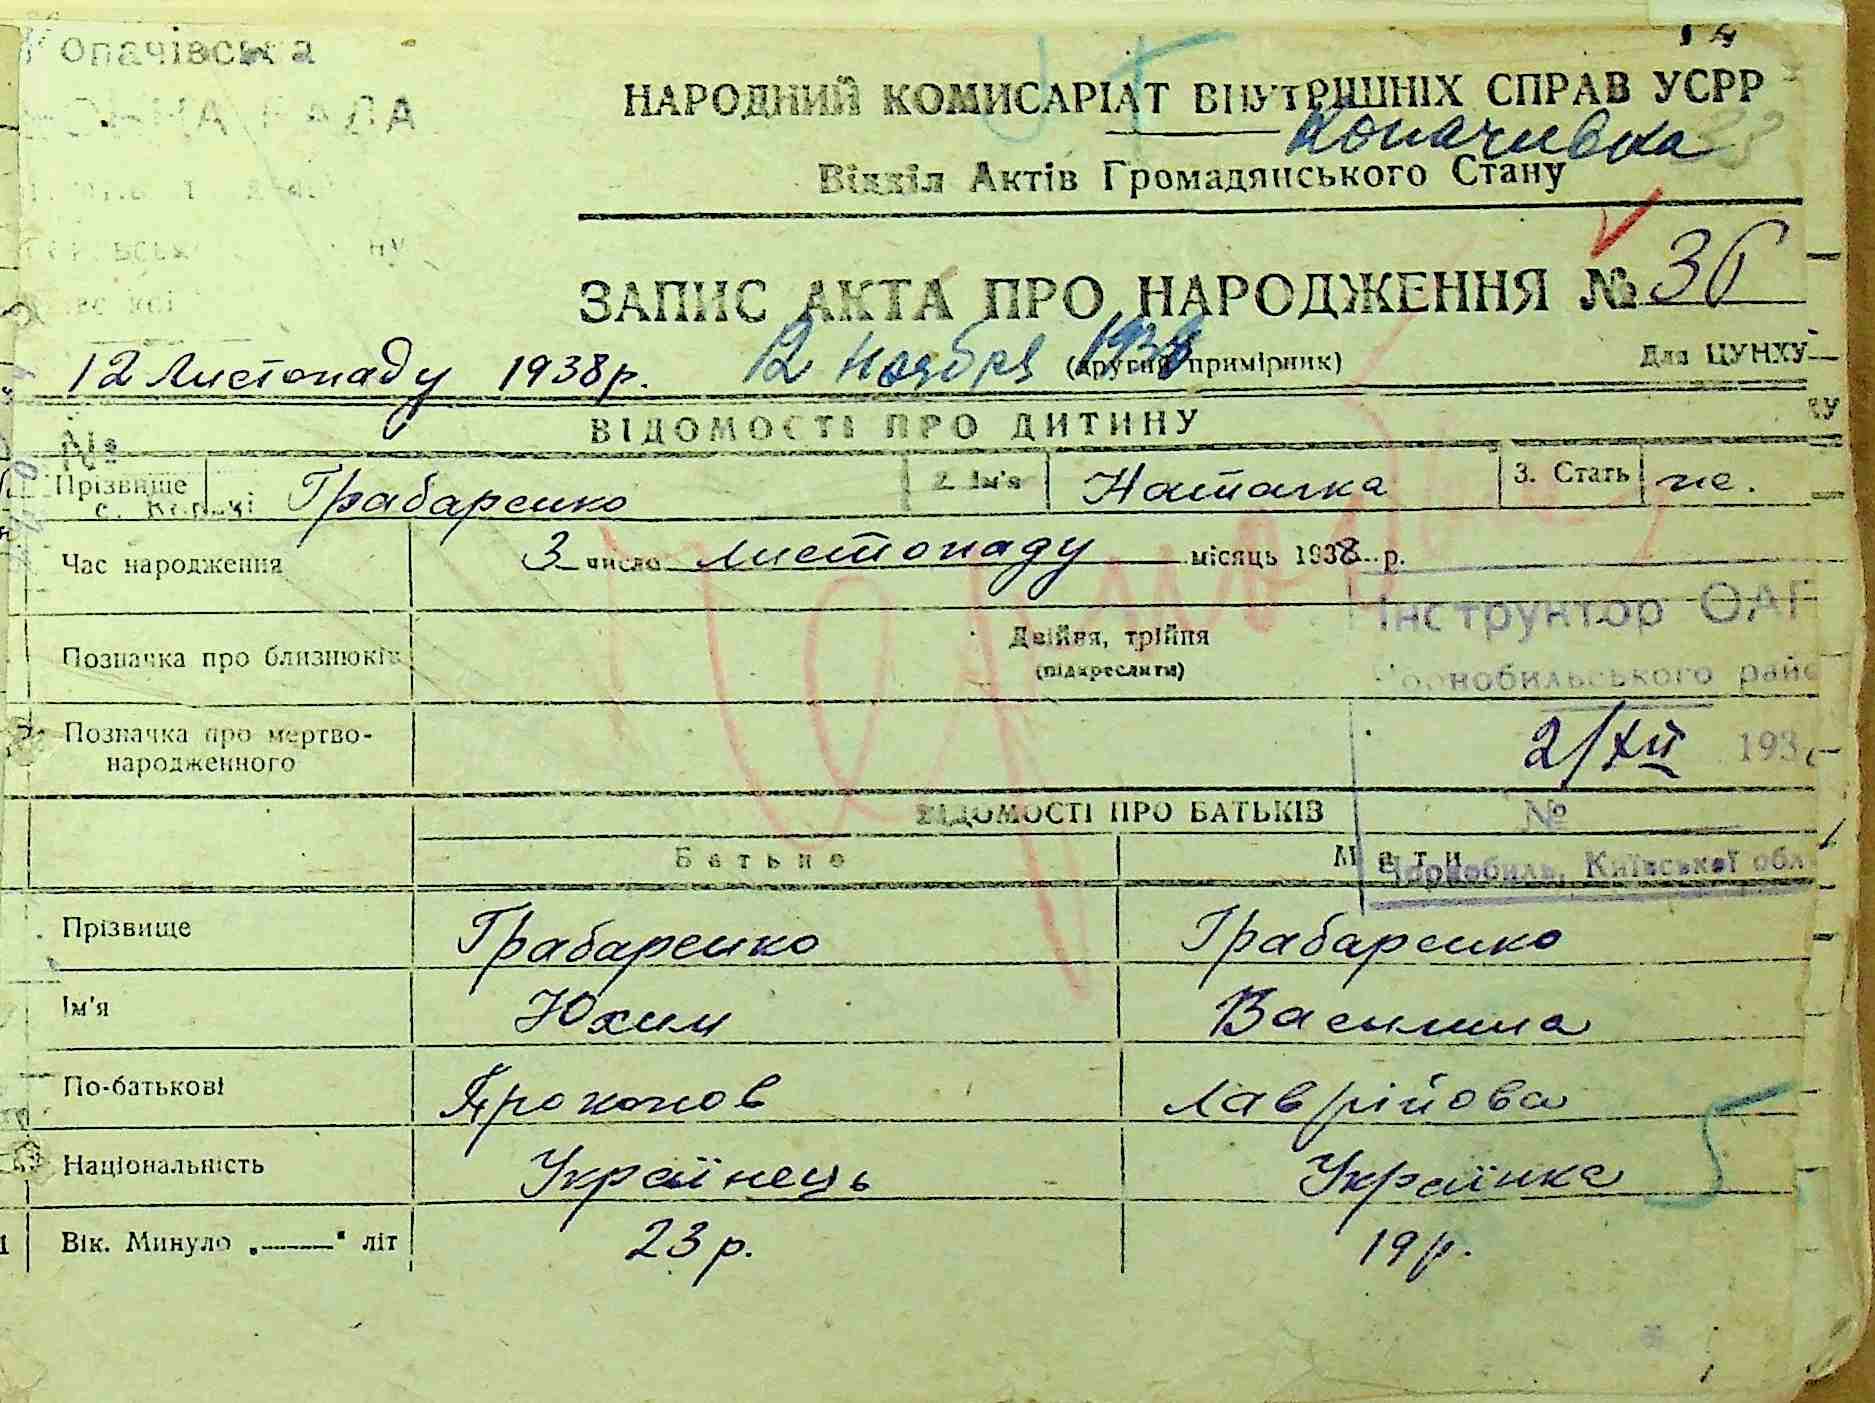 14
Копачівська
НАРОДНИЙ КОМИСАРІАТ ВНУТРІШНІХ СПРАВ УСРР
Копачивка 33
Відділ Актів Громадянського Стану
ЗАПИС АКТА ПРО НАРОДЖЕННЯ № 36
12 Листопаду 1938 р. 12 ноября 1938 (другий примірник) Для ЦУНХУ
ВІДОМОСТІ ПРО ДИТИНУ
№
Прізвище Грабаренко 2. Ім'я Наталка 3. Стать же.
Час народження 3 число листопаду місяць 1938 р.
Інструктор ОАГ
Позначка про близнюків Двійня, трійня
(підкреслити)
Чорнобильського райо
Позначка про мертво-
народженного
2/XII 193
ВІДОМОСТІ ПРО БАТЬКІВ
№
Батько Мати
Чорнобиль, Київської обл
Прізвище Грабаренко Грабаренко
Ім'я Юхим Василина
По-батькові Прокопов Лаврійова
5
Національність Українець Українка
Вік. Минуло „—“ літ 23 р. 19 р.